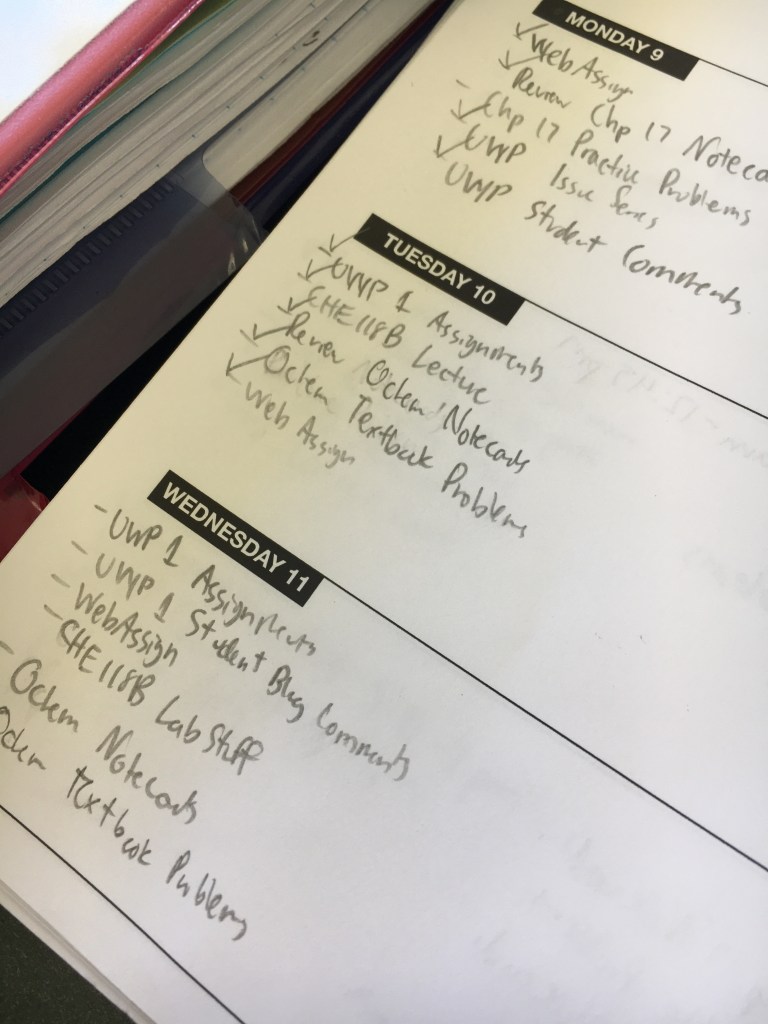 MONDAY 9
✓ WebAssign
✓ Review Chp 17 Noteca
- Chp 17 Practice Problems
✓ UWP Issue Series
✓ UWP Student Comments
TUESDAY 10
✓ UWP 1 Assignments
✓ CHE118B Lecture
✓ Review Ochem Notecards
✓ Ochem Textbook Problems
✓ Web Assign
WEDNESDAY 11
- UWP 1 Assignments
- UWP 1 Student Blog Comments
- WebAssign
- CHE118B Lab Stuff
- Ochem Notecards
Ochem Textbook Problems